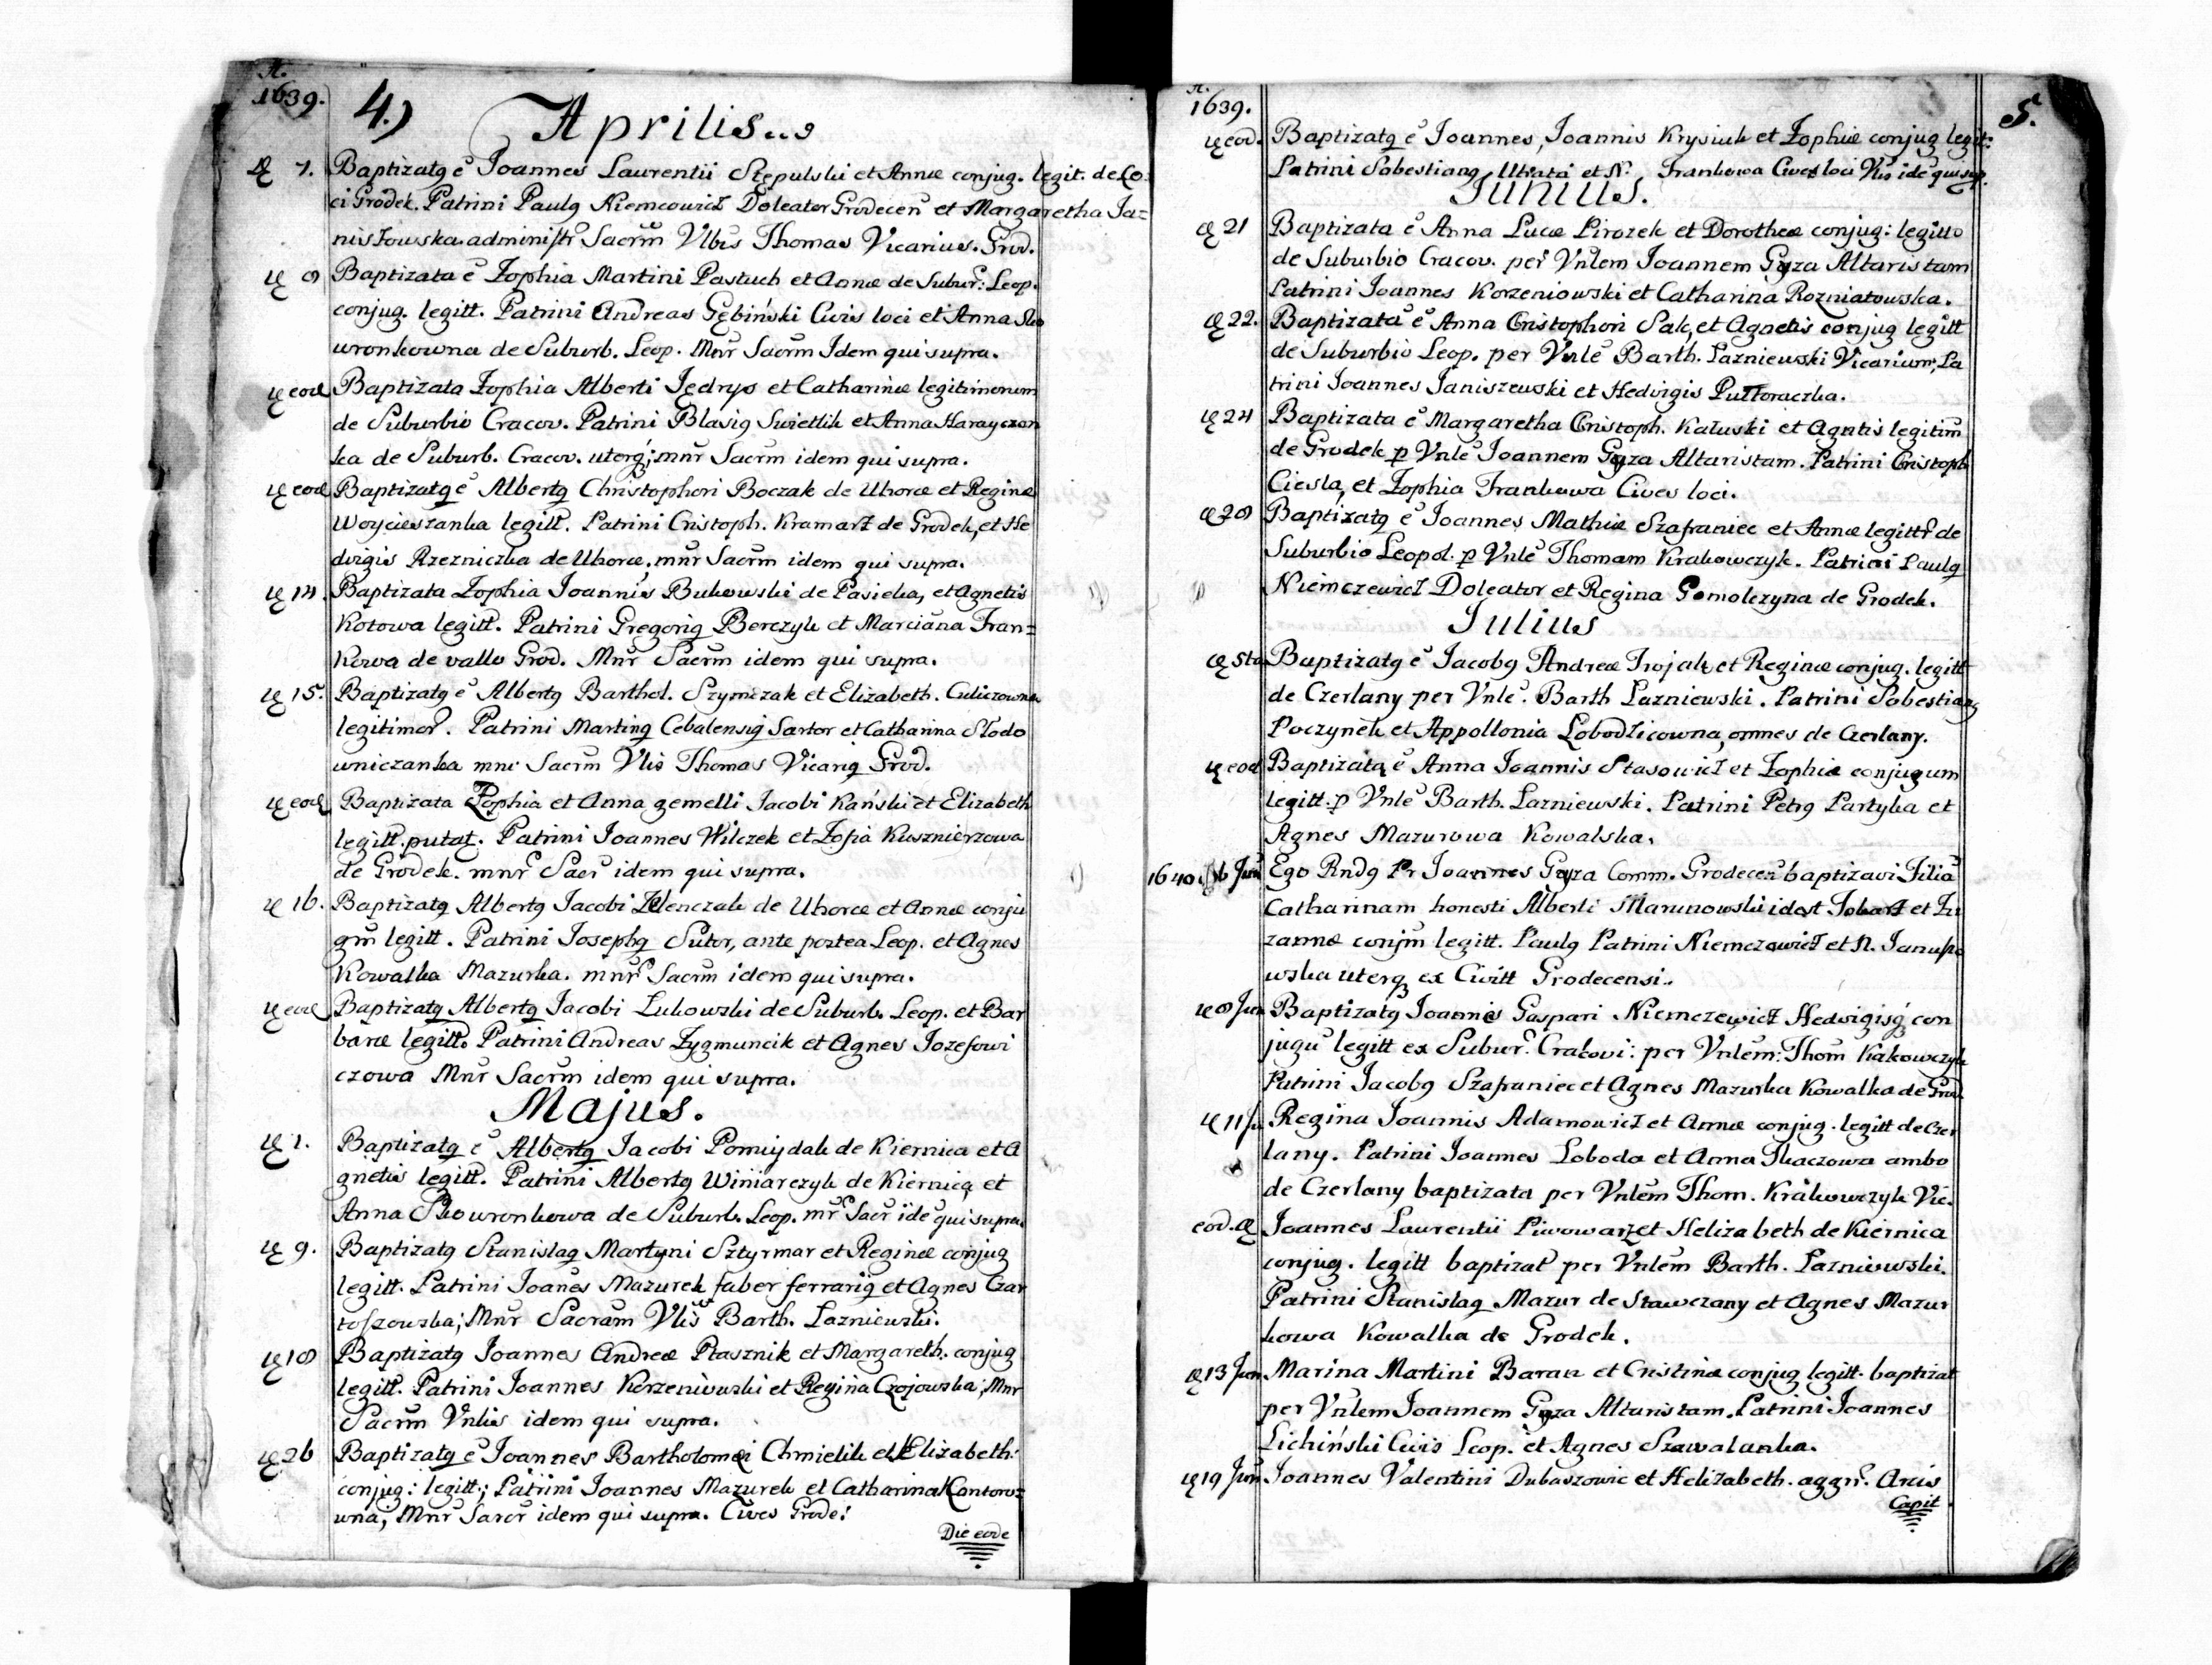 A.
1639. 4.) Aprilis...
7. Baptizatq ē Joannes Laurentii Stępulski et Annæ conjug. legit. de Lo:
ci Grodek. Patrini Paulq Niemcowicz Doleator Grodecen et Margaretha Ja=
niszowska. administr Sacrm Vlbis Thomas Vicarius. Grod.
9 Baptizata ē Zophia Martini Pastuch et Annæ de Subur: Leop.
conjug. legitt. Patrini Andreas Gębiński Civis loci et Anna Sko
wronkowna de Suburb. Leop. Mnr Sacrm Idem qui supra.
eod Baptizata Zophia Alberti Jędrys et Catharinæ legitimorum
de Suburbio Cracov. Patrini Blasiq Swietlik et Anna Harayczon
ka de Suburb. Cracov. uterq; mnr Sacrm idem qui supra.
eod Baptizatq ē Albertq Christophori Boczak de Uhorce et Reginæ
Woycieszanka legitt. Patrini Cristoph. Kramarz de Grodek, et He
dvigis Rzezniczka de Uhorce, mnr Sacrm idem qui supra.
14. Baptizata Zophia Joannis Bukowski de Pasieka, et Agnetis
Kotowa legitt. Patrini Gregoriq Berczyk et Marciana Fran=
Kowa de vallo Grod. Mnr Sacrm idem qui supra.
15. Baptizatq ē Albertq Barthol. Szymczak et Elizabeth. Culiczowna
legitimor. Patrini Martinq Cebalensiq Sartor et Catharina Słodo
wniczanka mnr Sacrm Vlis Thomas Vicariq Grod.
eod Baptizata Zophia et Anna gemelli Jacobi Kański et Elizabeth
legitt. putat. Patrini Joannes Wilczek et Zofia Kusznierzowa
de Grodek. mnr Sacr idem qui supra.
16. Baptizatq Albertq Jacobi Zelenczak de Uhorce et Annæ conju
gm legitt. Patrini Josephq Sutor, ante portea Leop. et Agnes
Kowalka Mazurka. mnr Sacrm idem qui supra.
eod Baptizatq Albertq Jacobi Lukowski de Suburb. Leop. et Bar
baræ legitt. Patrini Andreas Zygmuncik et Agnes Jozefowi
czowa Mnr Sacrm idem qui supra.
Majus.
1. Baptizatq ē Albertq Jacobi Pomiydak de Kiernica et A
gnetis legitt. Patrini Albertq Winiarczyk de Kiernica et
Anna Skowronkowa de Suburb. Leop. mr Sacr idē qui supra.
9. Baptizatq Stanislaq Martyni Sztyrmar et Reginæ conjug
legitt. Patrini Joanes Mazurek faber ferrariq et Agnes Czar
toszowska; Mnr Sacram Vlis Barth. Lazniewski.
18 Baptizatq Joannes Andreæ Ptasznik et Margareth. conjug
legitt. Patrini Joannes Korzeniowski et Regina Czojowska; Mnr
Sacrm Vnlis idem qui supra.
26 Baptizatq ē Joannes Bartholomæi Chmielik et Elizabeth:
conjug: legitt; Patrini Joannes Mazurek et Catharina Kantorow:
wna; Mnr Sacr idem qui supra. Cives Grode:
Die eode
A.
1639. 5.
eod. Baptizatq ē Joannes, Joannis Krysiuk et Zophiæ conjug legit:
Patrini Sobestianq Utrata et N. Frankowa Cives loci Vlis idē qui sup.
Junius.
21 Baptizata ē Anna Lucæ Pirozek et Dorotheæ conjug: legitto
de Suburbio Cracov. per Vnlem Joannem Gyza Altaristam
Patrini Joannes Korzeniowski et Catharina Rozniatowska.
22. Baptizata ē Anna Cristophori Sak, et Agnetis conjug legitt
de Suburbio Leop. per Vnlē Barth. Lazniewski Vicarium, Pa
trini Joannes Janiszewski et Hedvigis Pułtoraczka.
24 Baptizata ē Margaretha Cristoph. Kałuski et Agntis legitim
de Grodek p Vnlē Joannem Gyza Altaristam. Patrini Cristoph
Ciesla, et Zophia Frankowa Cives loci.
28 Baptizatq ē Joannes Mathiæ Szafraniec et Annæ legittr de
Suburbio Leopol. p Vnlē Thomam Krakowczyk. Patrini Paulq
Niemczewicz Doleator et Regina Gomolczyna de Grodek.
Julius
5ta Baptizatq ē Jacobq Andreæ Trojak et Reginæ conjug. legitt
de Czerlany per Vnlē. Barth Lazniewski. Patrini Sobestianq
Poczynek et Appollonia Lobodzicowna, omnes de Czerlany.
eod Baptizata ē Anna Joannis Stasowicz et Zophiæ conjugum
legitt. p Vnlē Barth. Lazniewski. Patrini Petrq Partyka et
Agnes Mazurowa Kowalska.
1640. 6 Jun Ego Rndq Pr Joannes Gyza Comm. Grodecen baptizavi Filiā
Catharinam honesti Alberti Marunowski idest Tokarz et Zu
zannæ conjm legitt. Paulq Patrini Niemczewicz et N. Janusz
wska uterq ex Civitt Grodecensi.
8 Jun Baptizatq Joannes Gaspari Niemczewicz Hedvigisq con
jugū legitt ex Subur. Cracovi: per Vnlem: Thom Kakowczyk
Patrini Jacobq Szafraniec et Agnes Mazurka Kowalka de Grod.
11 Ju Regina Joannis Adamowicz et Annæ conjug. legitt de Czer
lany. Patrini Joannes Loboda et Anna Tkaczowa ambo
de Czerlany baptizata per Vnlem Thom. Krakowczyk Vic.
eod. Joannes Laurentii Piwowarz et Helizabeth de Kiernica
conjug. legitt baptizat per Vnlem Barth. Lazniewski.
Patrini Stanislaq Mazur de Stawczany et Agnes Mazur
kowa Kowalka de Grodek.
13 Jun Marina Martini Baran et Cristinæ conjug legitt. baptizat
per Vnlem Joannem Gyza Altaristam. Patrini Joannes
Lichiński Civis Leop. et Agnes Szawalanka.
19 Jun Joannes Valentini Dubaszowic et Helizabeth. aggr. Arcis
Capit